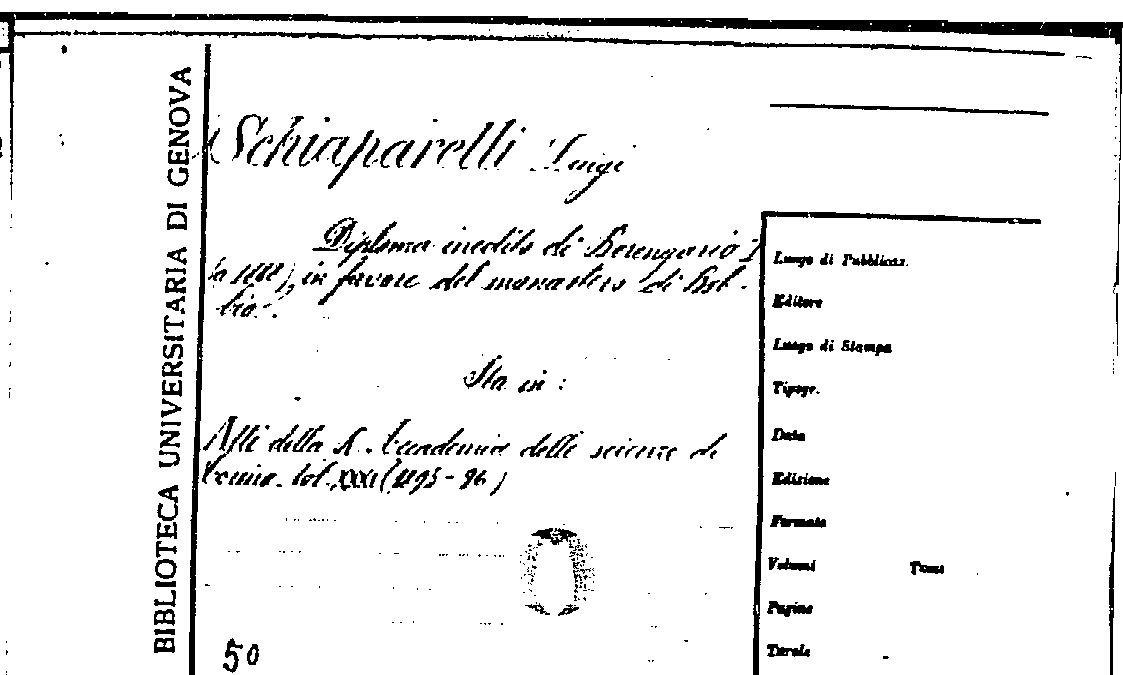 BIBLIOTECA UNIVERSITARIA DI GENOVA
Schiaparelli Luigi
Diploma inedito di Berengario I
(a 888), in favore del monastero di Bob-
bio.
Sta in :
Atti della R. Accademia delle scienze di
Torino. Vol. XXXI (1895-96)
50
Luogo di Pubblicaz.
Editore
Luogo di Stampa
Tipogr.
Data
Edizione
Formato
Volumi Tomi
Pagine
Tavole